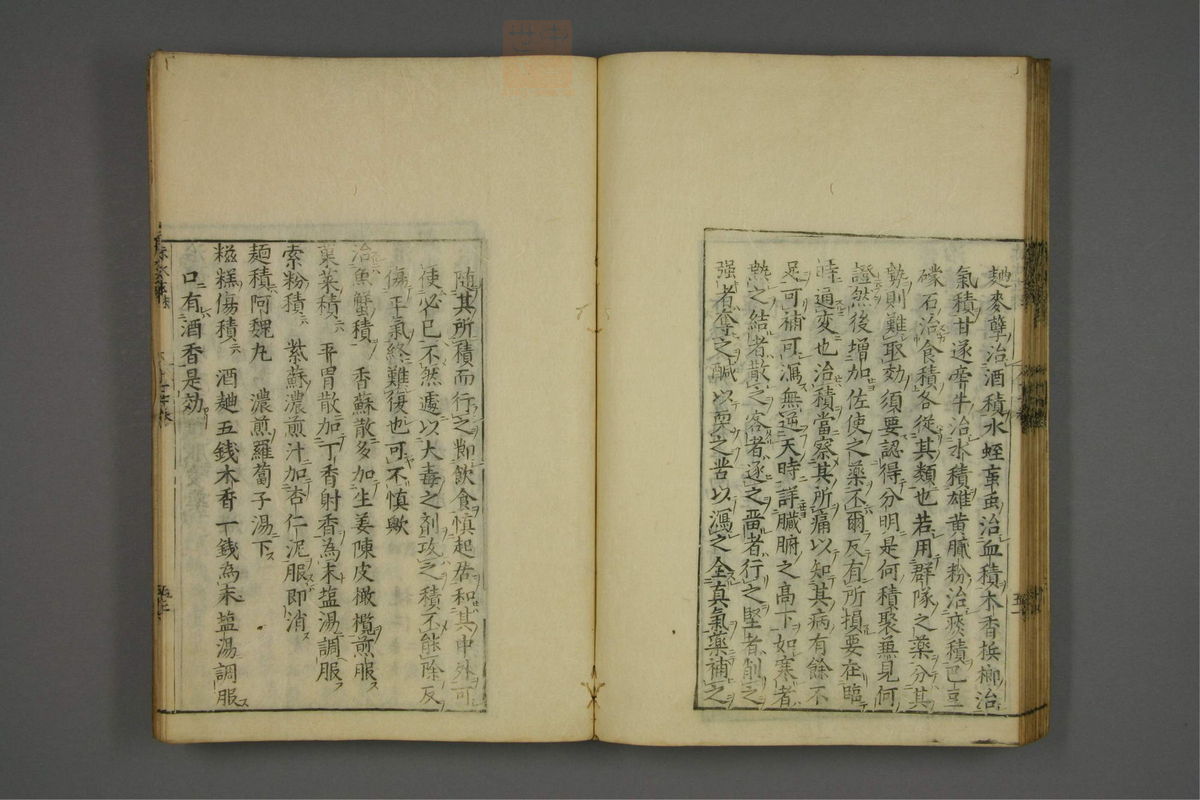 麯麥蘗治酒積水蛭䖟虫治血積木香梹榔治
氣積甘遂牽牛治水積雄黄膩粉治痰積巴豆
礞石治食積各從其類也若用群隊之藥分其
勢則難取効須要認得分明是何積聚兼見何
證然後増加佐使之藥不爾反有所損要在臨
時通変也治積當察其所痛以知其病有餘不
足可補可瀉無逆天時詳臓腑之高下如寒者
熱之結者散之客者逐之畱者行之堅者削之
强者奪之醎以耎之苦以瀉之全真氣藥補之
随其所積而行之節飲食慎起居和其中外可
使必已不然遽以大毒之剤攻之積不能除反
傷平氣終難復也可不慎歟
治魚蟹積 香蘇散多加生姜陳皮橄欖煎服
菓菜積 平胃散加丁香射香為末塩湯調服
索粉積 紫蘇濃煎汁加杏仁泥服即消
麺積阿魏丸 濃煎羅蔔子湯下
糍糕傷積 酒麯五銭木香一銭為末塩湯調服
口有酒香是効